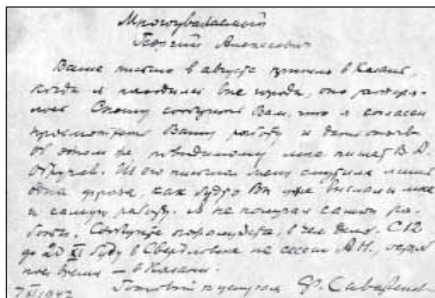 Многоуважаемый
Георгий Алексеевич
Ваше письмо в августе пришло в Казань,
когда я находился вне города, оно затеря-
лось. Спешу сообщить Вам, что я согласен
просмотреть Вашу работу и дать отзыв
Об этом же, повидимому мне пишет В. А.
Обручев. Из его письма меня смутила лишь
одна фраза, как будто Вы уже выслали мне
и самую работу. Я не получал самой ра-
боты. Сообщите пожалуйста, в чем дело. С 12
до 20 XI буду в Свердловске на сессии А.Н.,
ное время – в Казани.
7 XI 1942 Готовый к услугам Ф. Саваренский